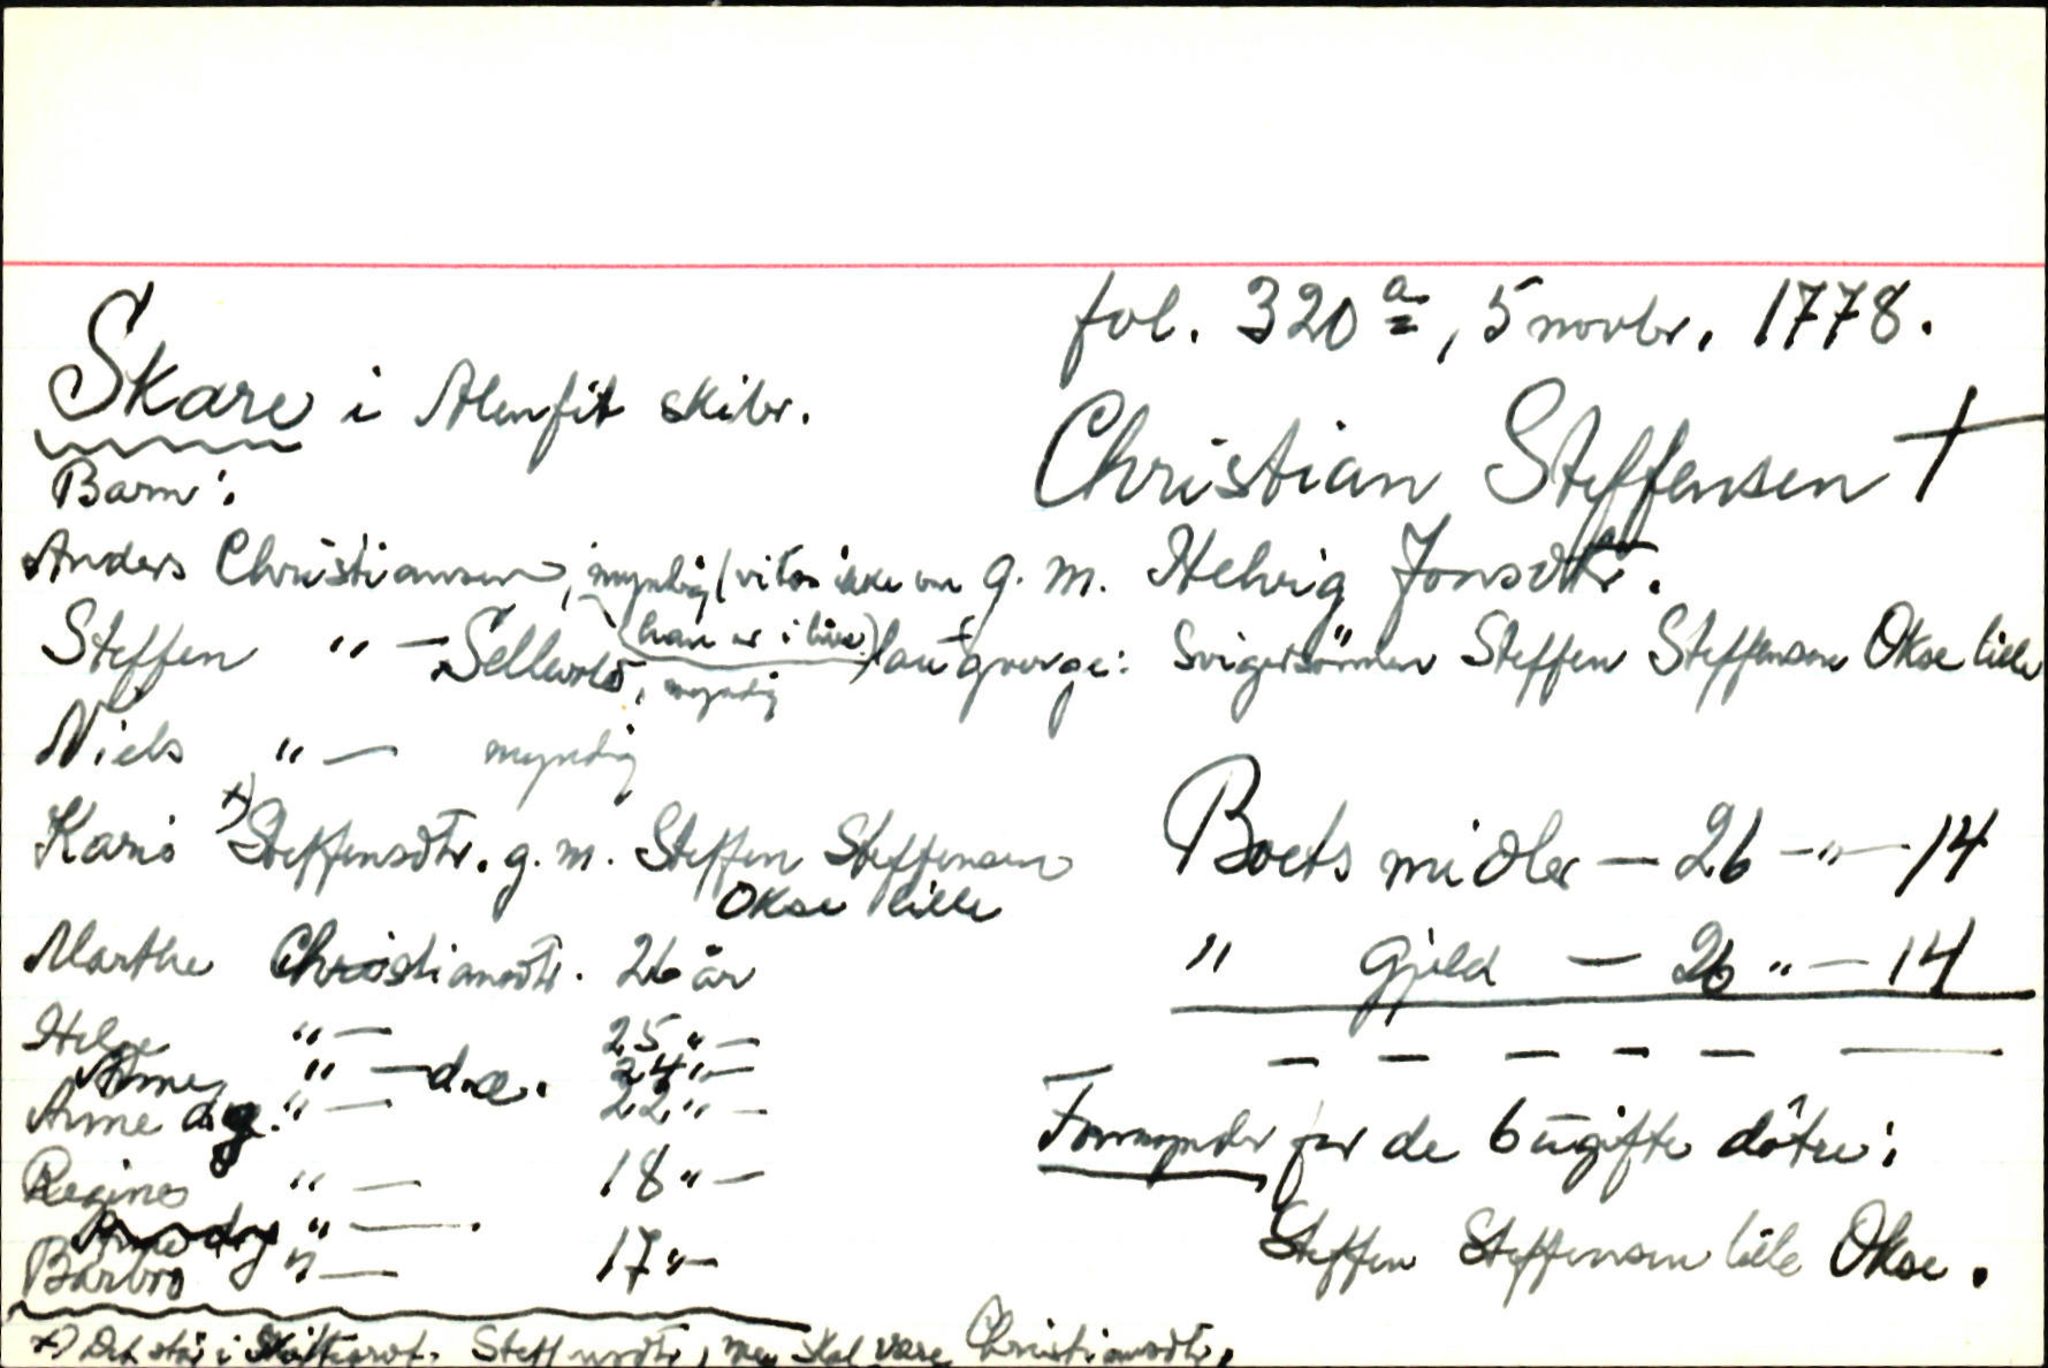 fol. 320 a, 5 novbr. 1778.
Skare i Alenfit skibr.
Christian Steffensen †
Barn:
Anders Christiansen, myndig (vides ikke om
han er i live)
g. m. Helvig Jonsdtr.
Steffen " — Sellevold, myndig
laugverge: Svigersönnen Steffen Steffensen Okse lille
Niels " — myndig
Kari x) Steffensdtr. g. m. Steffen Steffensen
Okse lille
Boets midler — 26 - " — 14
Marthe Christiansdtr. 26 år
" Gjeld — 26 " — 14
Helge " — 25 " —
Anne " — d.æ. 24 " —
Anne d.y. " — 22 " —
Formynder for de 6 ugifte døtre:
Regine " — 18 " —
Anne d.y " —
Barbro " — 17 " —
Steffen Steffensen lille Okse.
x) Det står i Skifteprot. Steffensdtr, men skal være Christiansdtr.